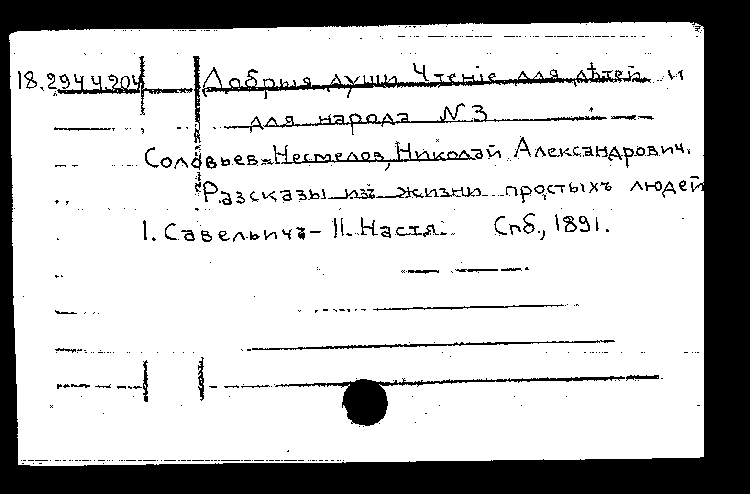 18.294.4.204 Добрыя души Чтенiе для дѣтей и
для народа N 3
Соловьев-Несмелов, Николай Александрович.
Разсказы изъ жизни простыхъ людей
I. Савельичъ- II. Настя. Спб., 1891.